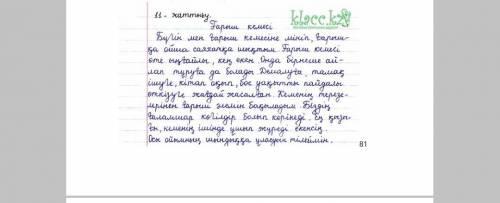 11 - жаттығу.
klacc.kz
Ғарыш кемесі
Бүгін мен ғарыш кемесіне мініп, ғарыш-
қа ойша саяхатқа шықтым. Ғарыш кемесі
өте ыңғайлы, кең екен. Онда бірнеше ай-
лап тұруға да болады. Дималуға, тамақ
ішуге, кітап оқып, бос уақытты пайдалы
өткізуге жағдай жасалған. Кеменің терезе-
лерінен ғарыш әлемін бақыладым. Біздің
ғаламшар көгілдір болып көрінеді. Ең қызы-
ғы, кеменің ішінде ұшып жүреді екенсің.
Осы ойымның шындыққа ұласуын тілеймін.
81